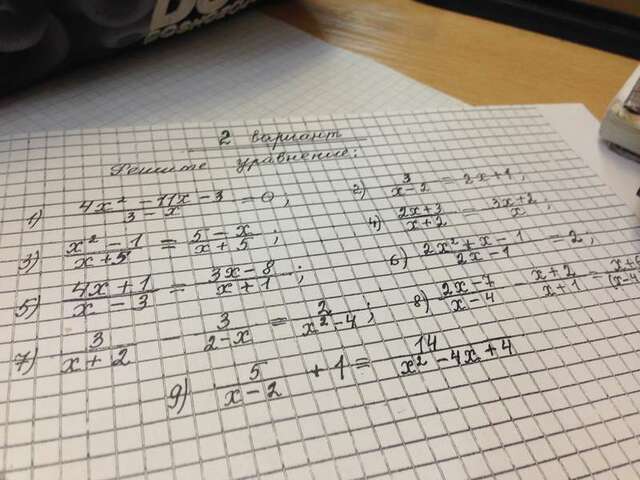 2 вариант
Решите уравнение:
1) (4x² - 11x - 3)/(3 - x) = 0; 2) 3/(x - 2) = 2x + 1,
3) (x² - 1)/(x + 5) = (5 - x)/(x + 5); 4) (2x + 3)/(x + 2) = (3x + 2)/x,
5) (4x + 1)/(x - 3) = (3x - 8)/(x + 1); 6) (2x² + x - 1)/(2x - 1) = 2,
7) 3/(x + 2) - 3/(2 - x) = 2/(x² - 4); 8) (2x - 7)/(x - 4) - (x + 2)/(x + 1) =
9) 5/(x - 2) + 1 = 14/(x² - 4x + 4)